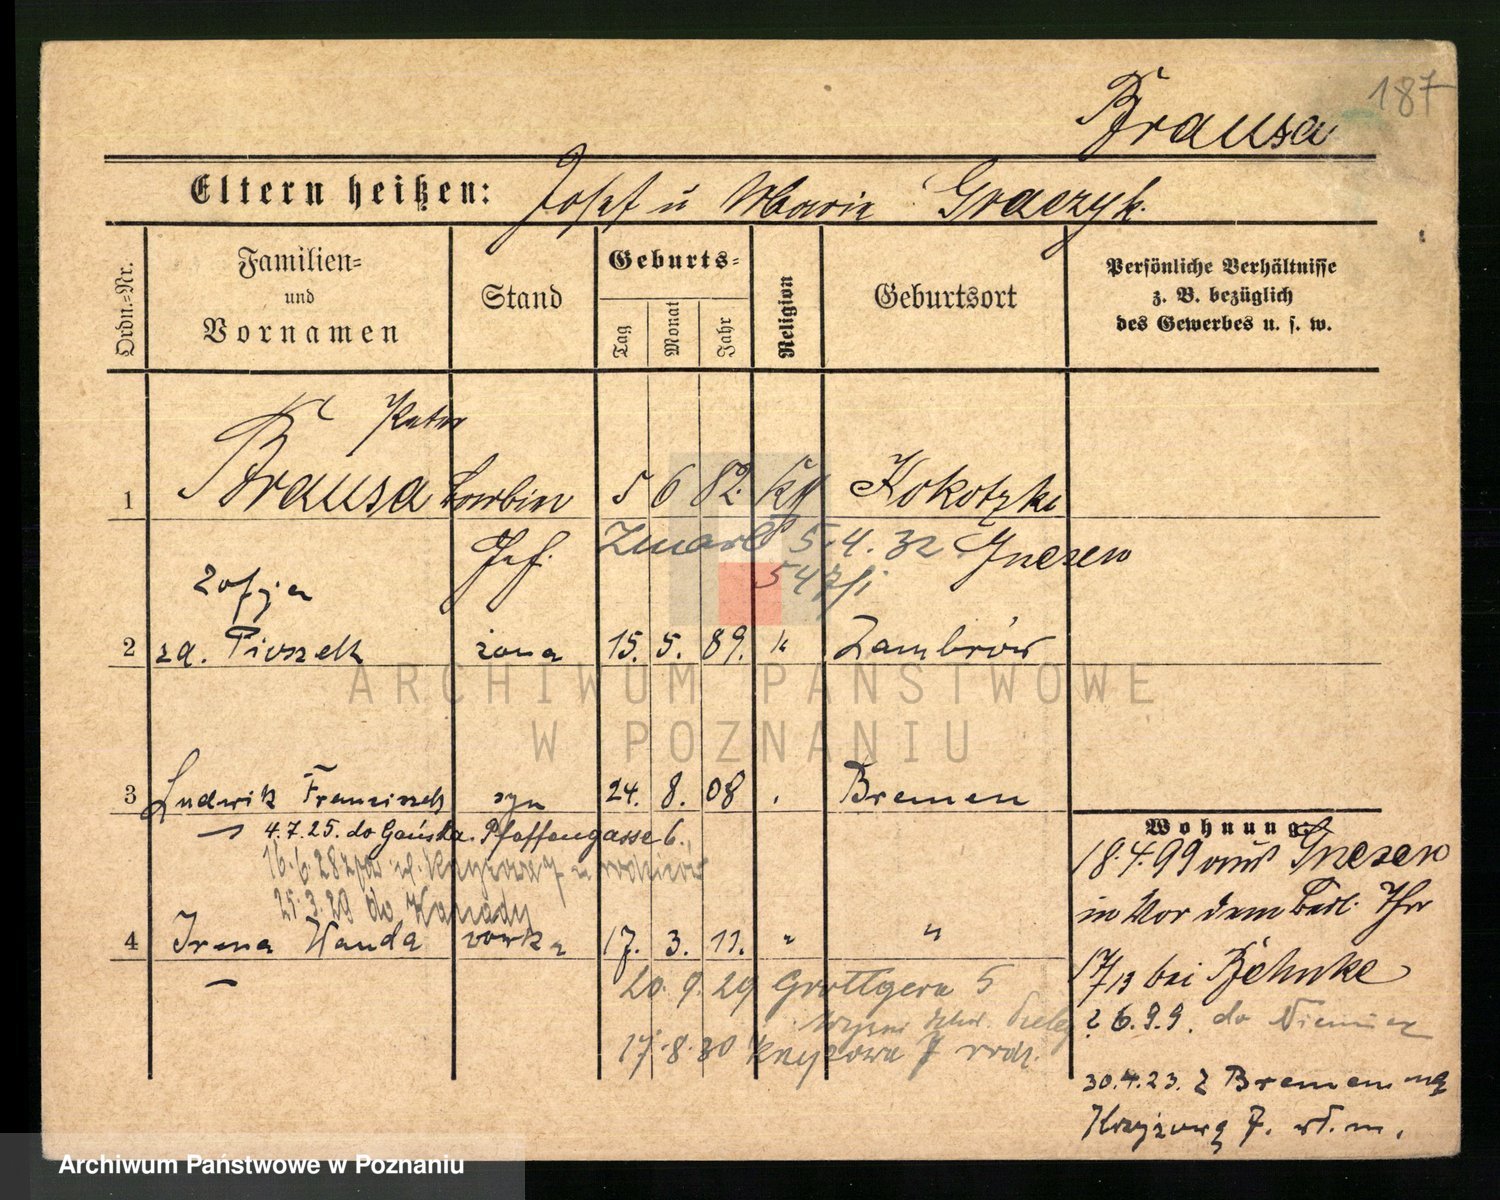 187
Brausa
Eltern heißen: Josef u Maria Graczyk.
Ordn.=Nr.
Familien=
und
Vornamen
Stand
Geburts=
Tag
Monat
Jahr
Religion
Geburtsort
Persönliche Verhältnisse
z. B. bezüglich
des Gewerbes u. s. w.
Peter
1 Brausa 5 6 82. Kokotzki
Zmarł 5.4.32 Gnesen
Zofja
2 za. Pioszek żona 15. 5. 89. " Zambrów
ARCHIWUM PAŃSTWOWE
W POZNANIU
3 Ludwik Franciszek syn 24. 8. 08 Bremen
4.7.25. do Gdańska. Pfaffengasse 6.
16.6.28 ul. Krzyżowa 7 u rodziców
25.3.29 do Kanady
4 Irena Wanda córka 17. 3. 11. " "
20. 9. 29 Grottgera 5
17.8.30 Krzyżowa 7 rodz.
Wohnung:
18.4.99 aus Gnesen
in Vor dem Berl. Thor
17/13 bei Behnke
26.9.9. do Niemiec
30.4.23. z Bremen na
Krzyżową 7.
Archiwum Państwowe w Poznaniu